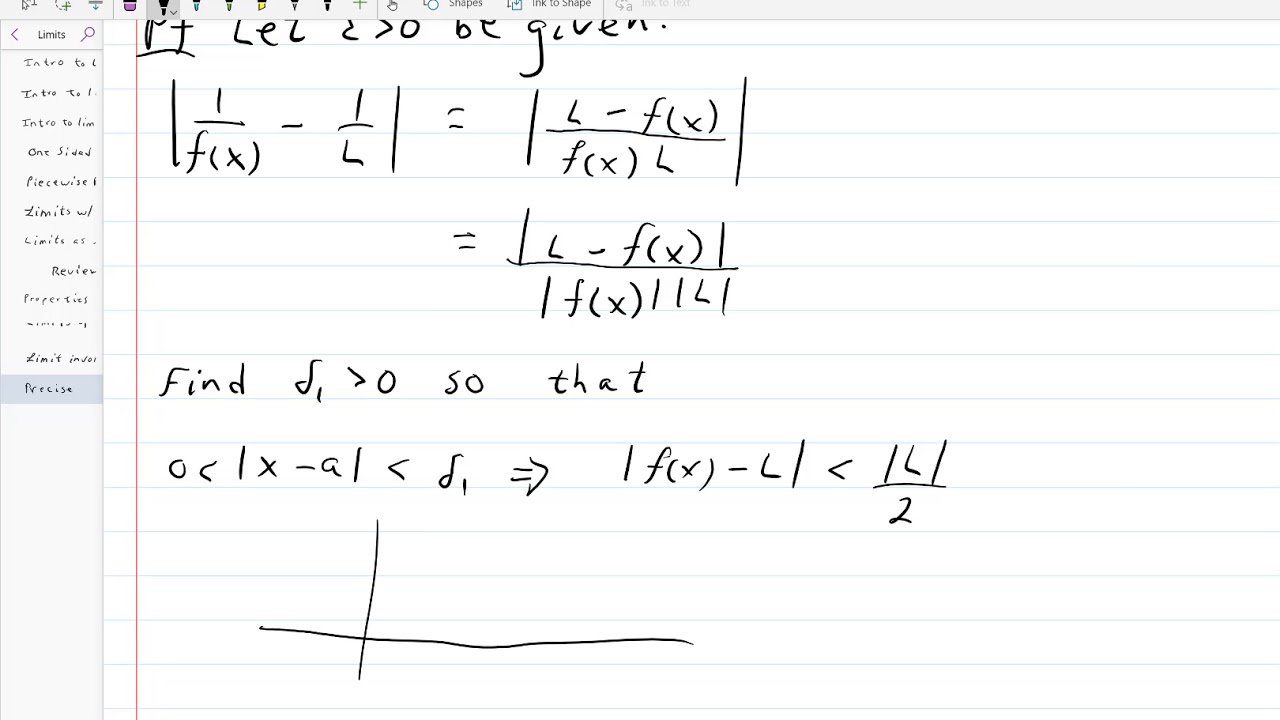 Shapes Ink to Shape Ink to Text
Limits
Intro to L
Intro to l
Intro to lim
One Sided
Piecewise
Limits w/
Limits as
Review
Properties
Limit invol
Precise
Pf Let ε > 0 be given.
|1/f(x) - 1/L| = |(L - f(x))/(f(x) L)|
= |L - f(x)|/(|f(x)| |L|)
Find δ₁ > 0 so that
0 < |x - a| < δ₁ ⇒ |f(x) - L| < |L|/2